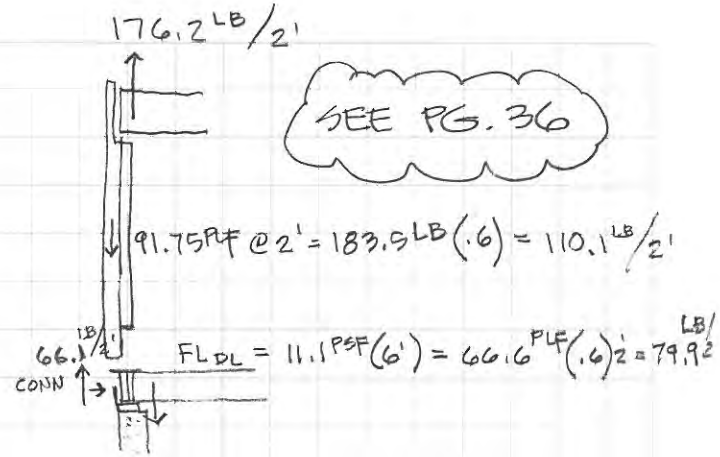 176.2 LB/2'
SEE PG. 36
91.75 PLF @ 2' = 183.5 LB (.6) = 110.1 LB/2'
66.1 LB/2'
CONN
FL DL = 11.1 PSF (6') = 66.6 PLF (.6) 2' = 79.9 LB/2'